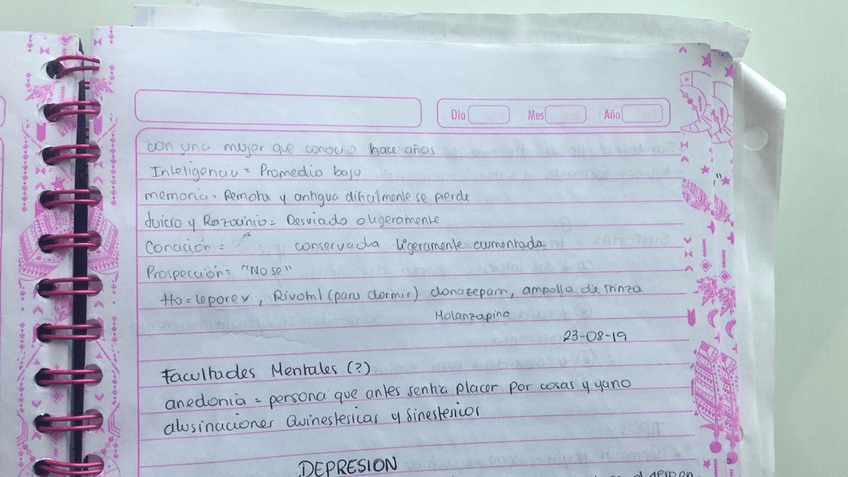 Día Mes Año
con una mujer que conocio hace años
Inteligencia = Promedio bajo
memoria = Remota y antigua dificilmente se pierde
Juicio y Razocinio = Desviado o ligeramente
Conación = conservada ligeramente aumentada
Prospección: "No se"
Tto = leporex, Rivotril (para dormir) clonazepam, ampolla de
Molanzapina
23-08-19
Facultades Mentales (?)
anedonia = persona que antes sentia placer por cosas y ya no
alusinaciones Quinestesicas y Sinestesicos
DEPRESION